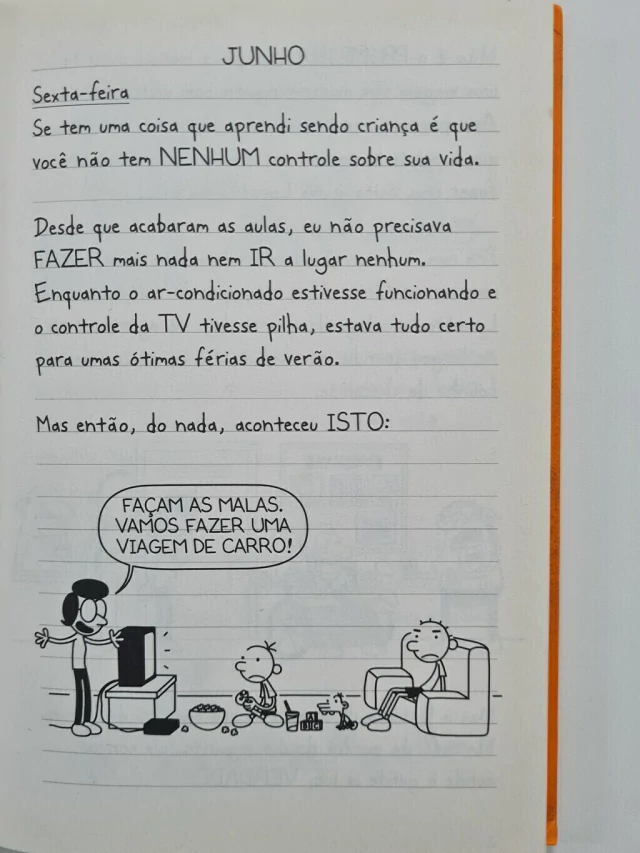 JUNHO
Sexta-feira
Se tem uma coisa que aprendi sendo criança é que
você não tem NENHUM controle sobre sua vida.
Desde que acabaram as aulas, eu não precisava
FAZER mais nada nem IR a lugar nenhum.
Enquanto o ar-condicionado estivesse funcionando e
o controle da TV tivesse pilha, estava tudo certo
para umas ótimas férias de verão.
Mas então, do nada, aconteceu ISTO:
FAÇAM AS MALAS.
VAMOS FAZER UMA
VIAGEM DE CARRO!